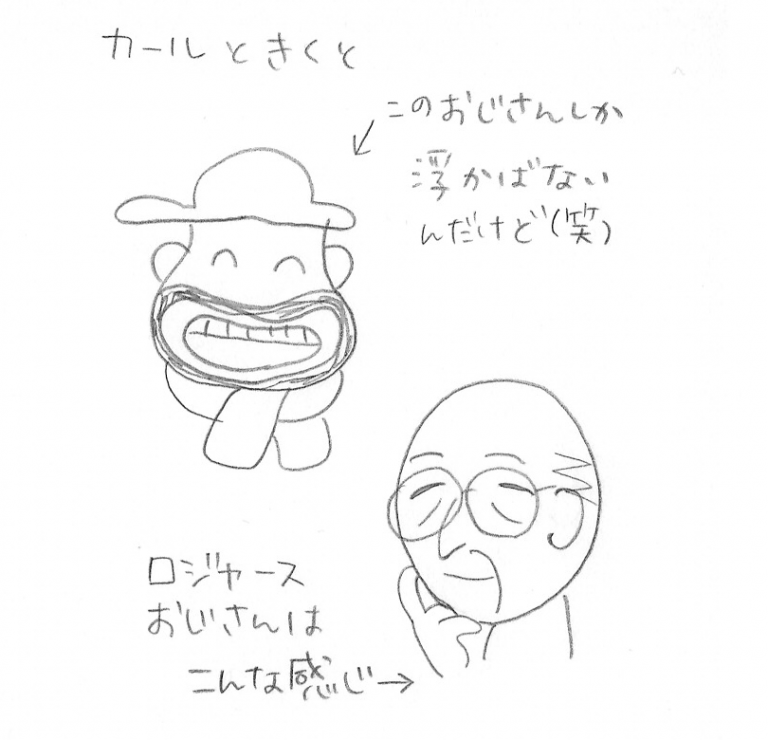 カールときくと
このおじさんしか
浮かばない
んだけど(笑)
ロジャース
おじさんは
こんな感じ→